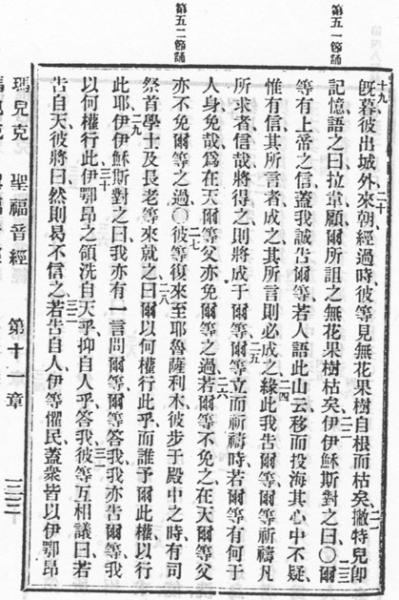 第五一節誦
第五二節誦
十九旣暮彼出城外二十來朝經過時彼等見無花果樹自根而枯矣二一撇特兒卽
記憶語之曰拉韋顧爾所詛之無花果樹枯矣二二伊伊穌斯對之曰〇二三爾
等有上帝之信蓋我誠告爾等若人語此山云移而投海其心中不疑
惟有信其所言者成之其所言則必成之二四緣此我告爾等爾等祈禱凡
所求者信哉將得之則將成于爾等二五爾等立而祈禱時若爾等有何于
人身免哉爲在天爾等父亦免爾等之過二六若爾等不免之在天爾等父
亦不免爾等之過〇二七彼等復來至耶魯薩利木彼步于殿中之時有司
祭首學士及長老等來就之二八曰爾以何權行此乎而誰予爾此權以行
此耶二九伊伊穌斯對之曰我亦有一言問爾等爾等答我我亦告爾等我
以何權行此三十伊鄂昂之領洗自天乎抑自人乎答我三一彼等互相議曰若
告自天彼將曰然則曷不信之三二若告自人伊等懼民蓋衆皆以伊鄂昂
瑪兒克 聖福音經 第十一章 三三